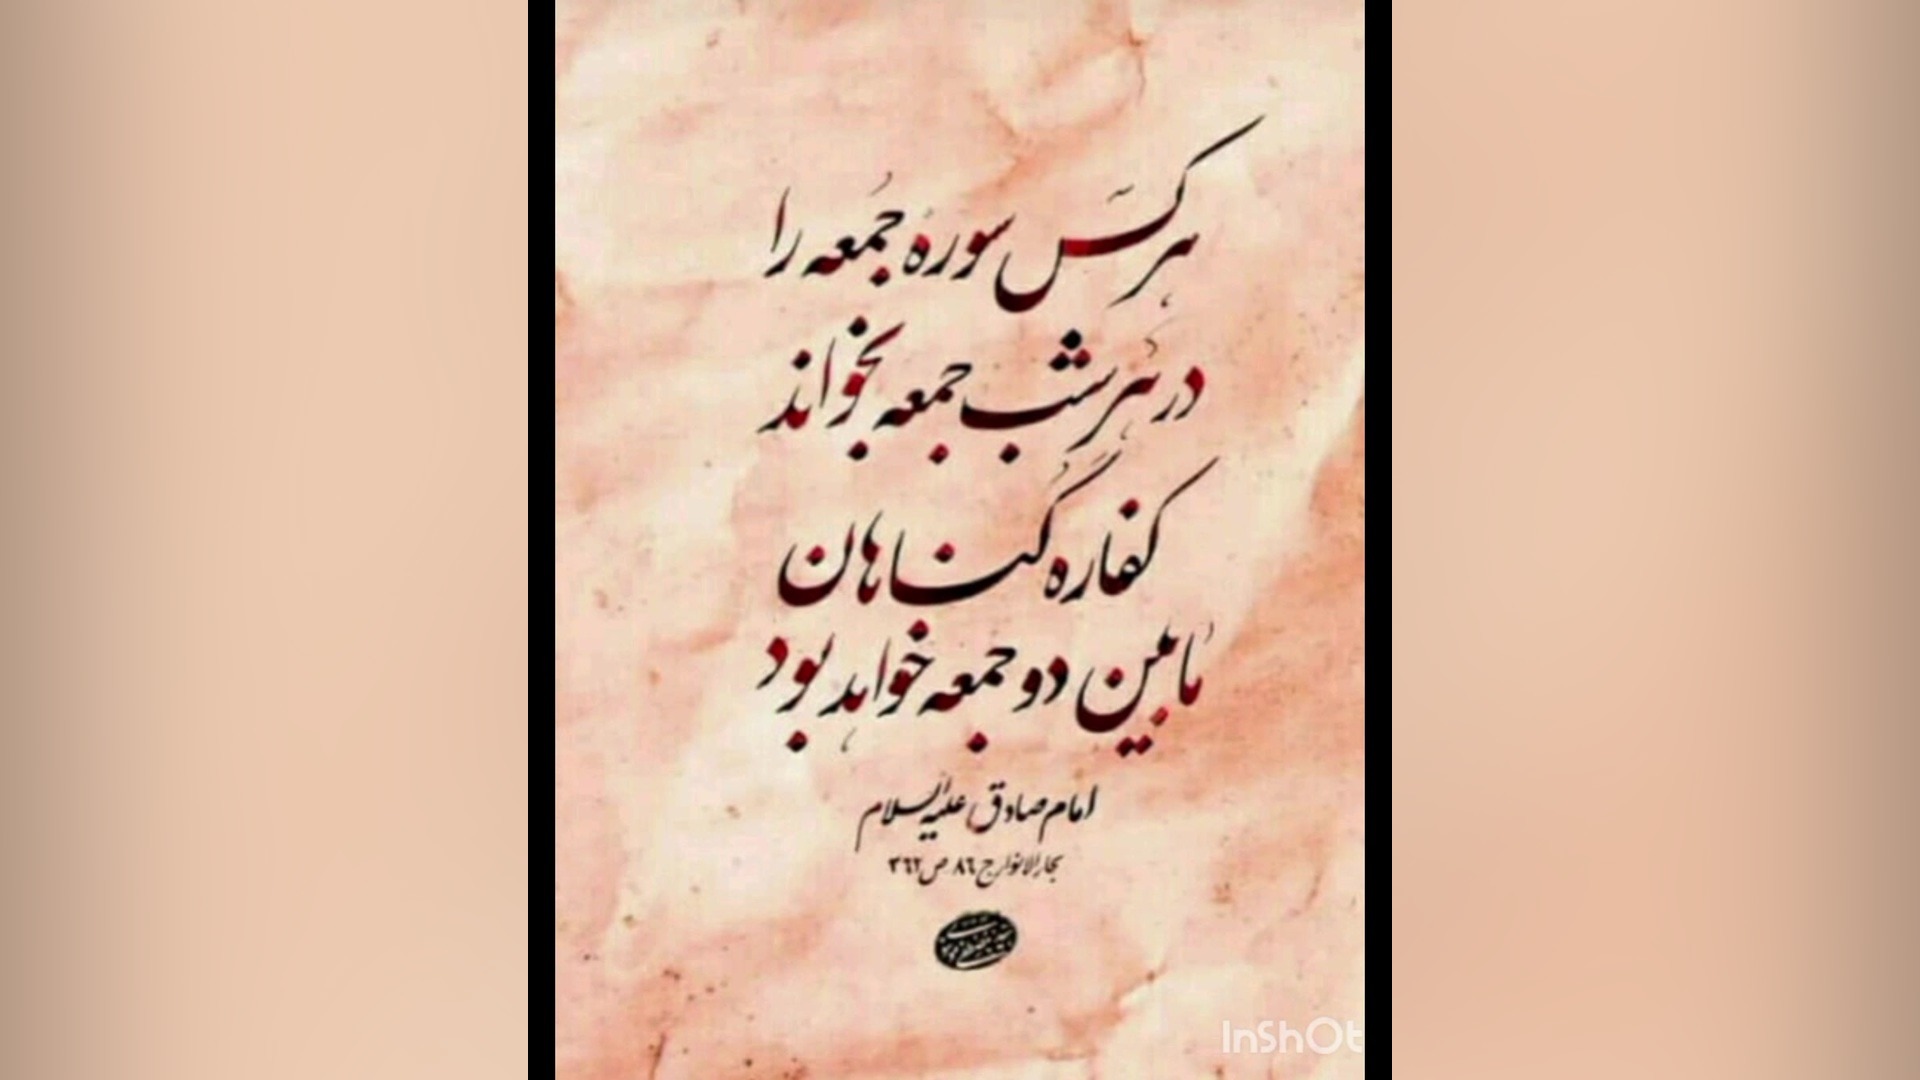 هر کس سوره جمعه را
در هر شب جمعه بخواند
کفاره گناهان
ما بین دو جمعه خواهد بود
امام صادق علیه السلام
بحار الانوار ج ۸۶ ص ۳۶۲
InShOt